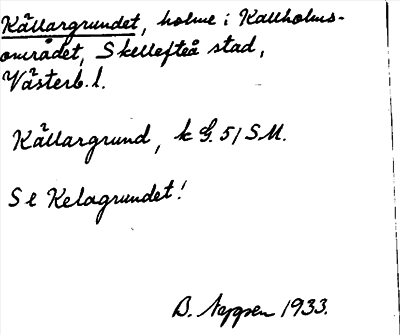 Källargrundet, holme i Kallholms-
området, Skellefteå stad,
Västerb. l.
Källargrund, k G. 51 SM.
Se Kelagrundet!
B. Nygren 1933.